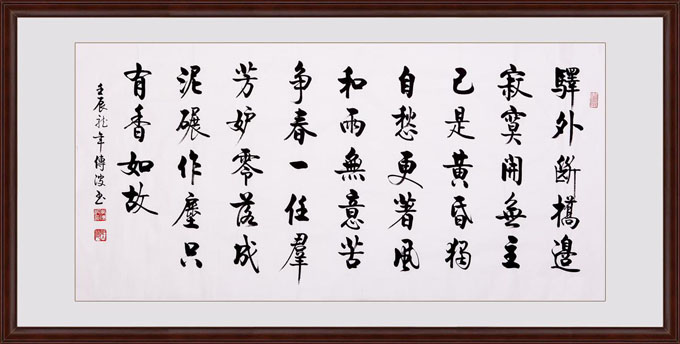 驛外斷橋邊
寂寞開無主
已是黃昏獨
自愁更著風
和雨無意苦
争春一任羣
芳妒零落成
泥碾作塵只
有香如故
壬辰龍年傳波书